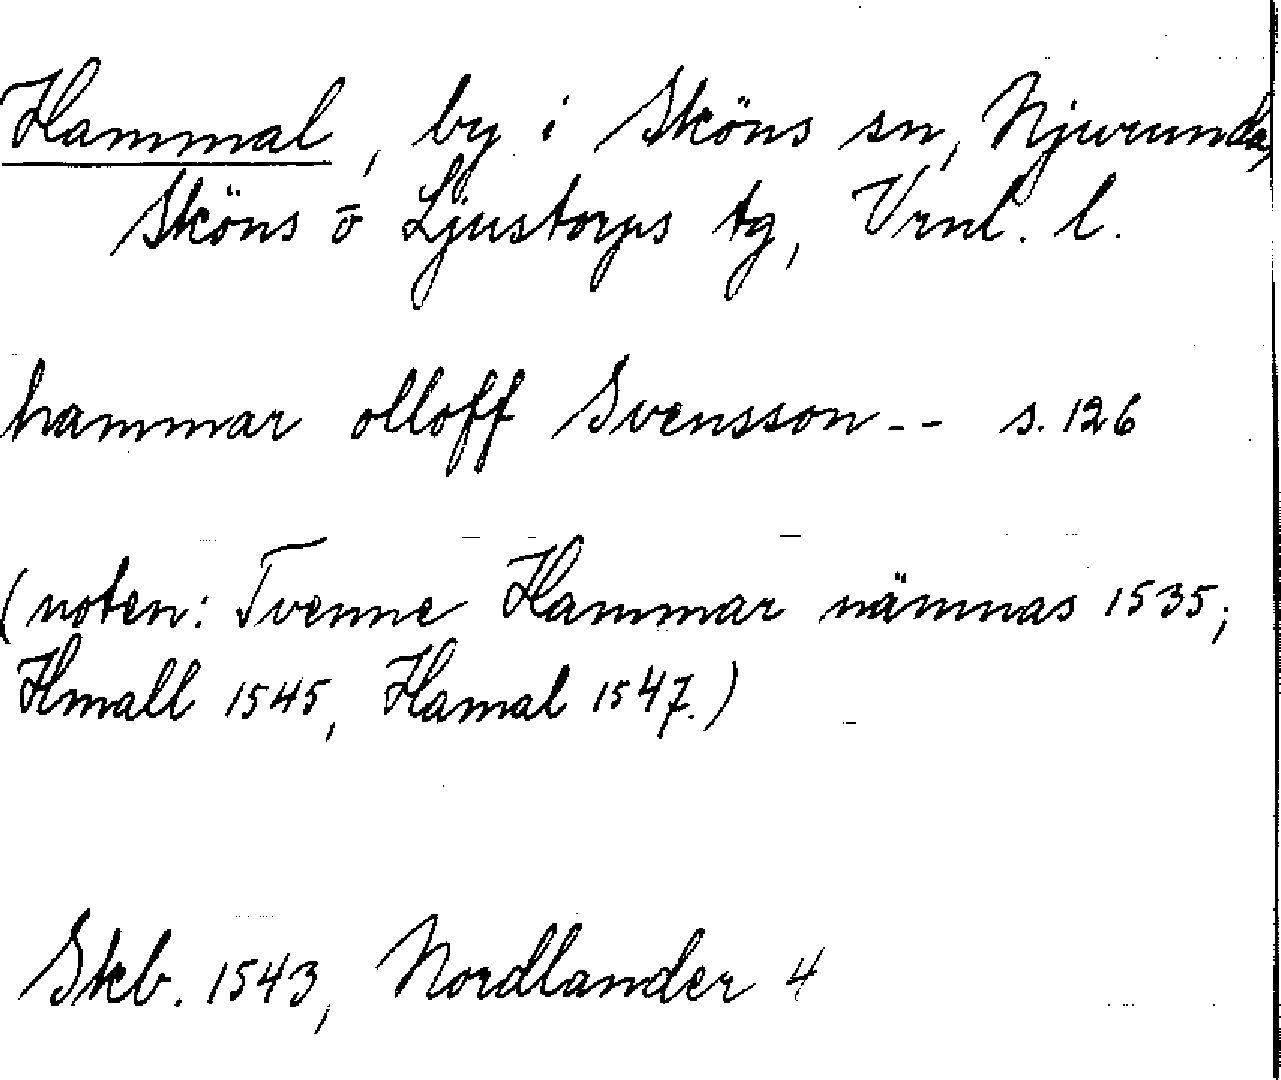 Hammal, by i Sköns sn, Njurunda,
Sköns o Ljustorps tg, Vrnl. l.
hammar olloff Svensson -- s. 126
(noten: Tvenne Hammar nämnas 1535;
Hmall 1545, Hamal 1547.)
Skb. 1543, Nordlander 4